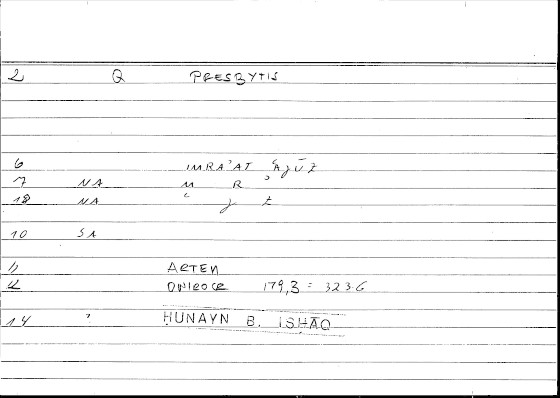 2 Q PRESBYTIS
6 IMRAʾAT ʿAJŪZ
7 NA M R ʾ
18 NA ʿ J Z
10 SA
ARTEM
ONIROCR 179,3 = 323.6
14 ḤUNAYN B. ISḤĀQ